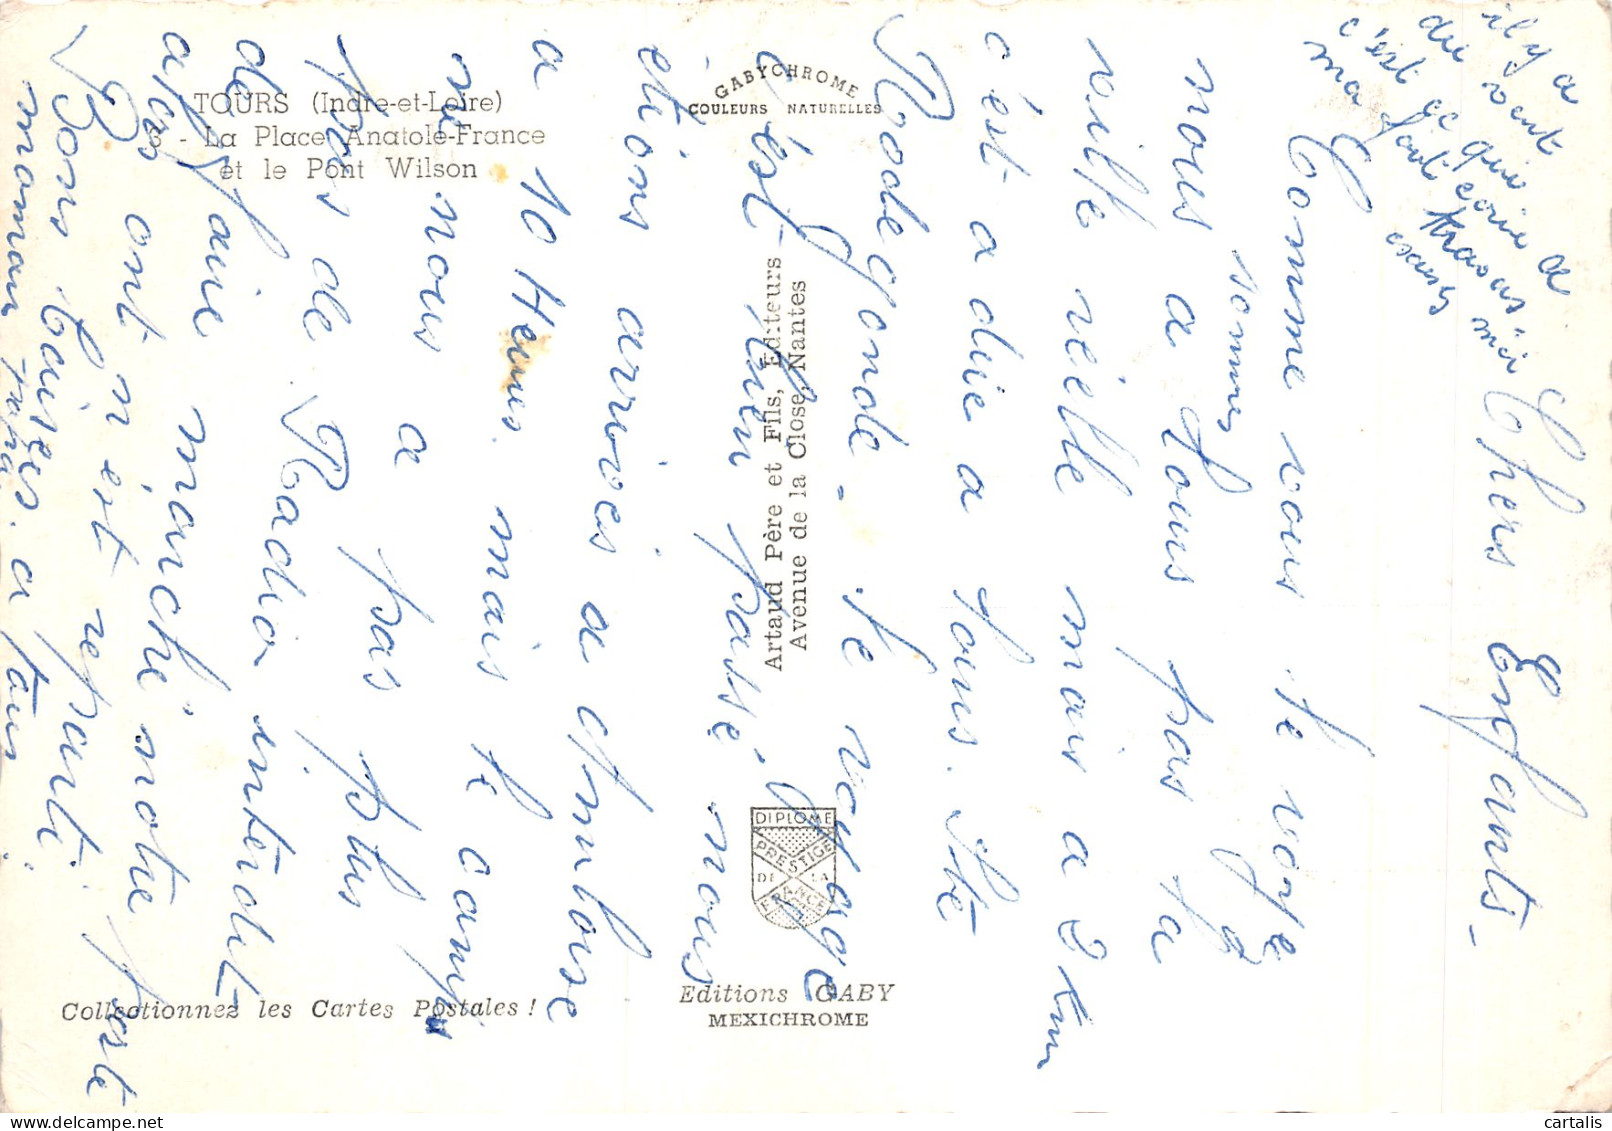 TOURS (Indre-et-Loire)
3 - La Place Anatole-France
et le Pont Wilson
GABYCHROME
COULEURS NATURELLES
Artaud Père et Fils, Editeurs
Avenue de la Close, Nantes
DIPLOME
PRESTIGE
DE LA
FRANCE
Editions GABY
MEXICHROME
Collectionnez les Cartes Postales !
il y a
du vent
c'est ce qui
ma fait écrie a
travers
Chers Enfants -
Comme vous le voyez
nous sommes a tours pas la
ville réelle mais a 2 km
c'est a dire a tours. Ste
Radegonde. le voyage
c'est bien passé. nous
étions arrivés a Amboise
a 10 Heures mais le camp
ne nous a pas plus
pas de Radio interdit
de faire marché notre poste
alors ont n'est reparti.
Bons baisers a tous
maman papa
cartalis